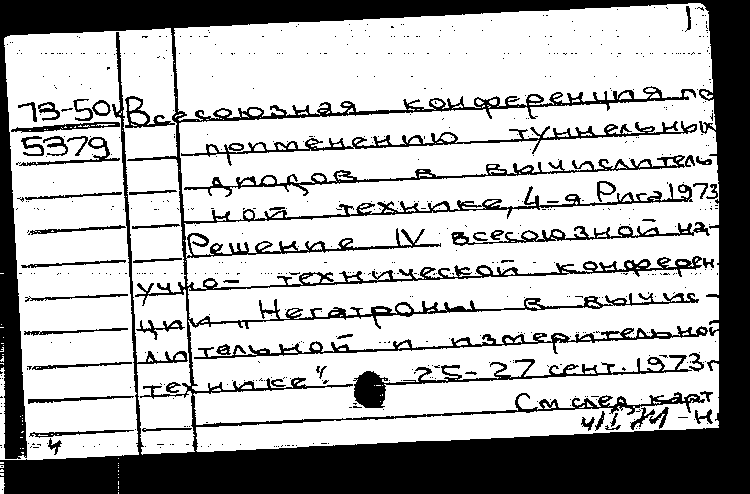 1
73-50к Всесоюзная конференция по
5379 применению туннельных
диодов в вычислитель-
ной технике, 4-я Рига 1973
Решение IV всесоюзной на-
учно-технической конферен-
ции „Негатроны в вычис-
лительной и измерительной
технике“. 25-27 сент. 1973г
См след карт
4